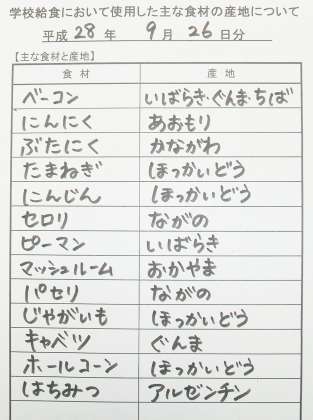 学校給食において使用した主な食材の産地について
平成 28 年 9 月 26 日分
【主な食材と産地】
食材 産地
ベーコン いばらき・ぐんま・ちば
にんにく あおもり
ぶたにく かながわ
たまねぎ ほっかいどう
にんじん ほっかいどう
セロリ ながの
ピーマン いばらき
マッシュルーム おかやま
パセリ ながの
じゃがいも ほっかいどう
キャベツ ぐんま
ホールコーン ほっかいどう
はちみつ アルゼンチン